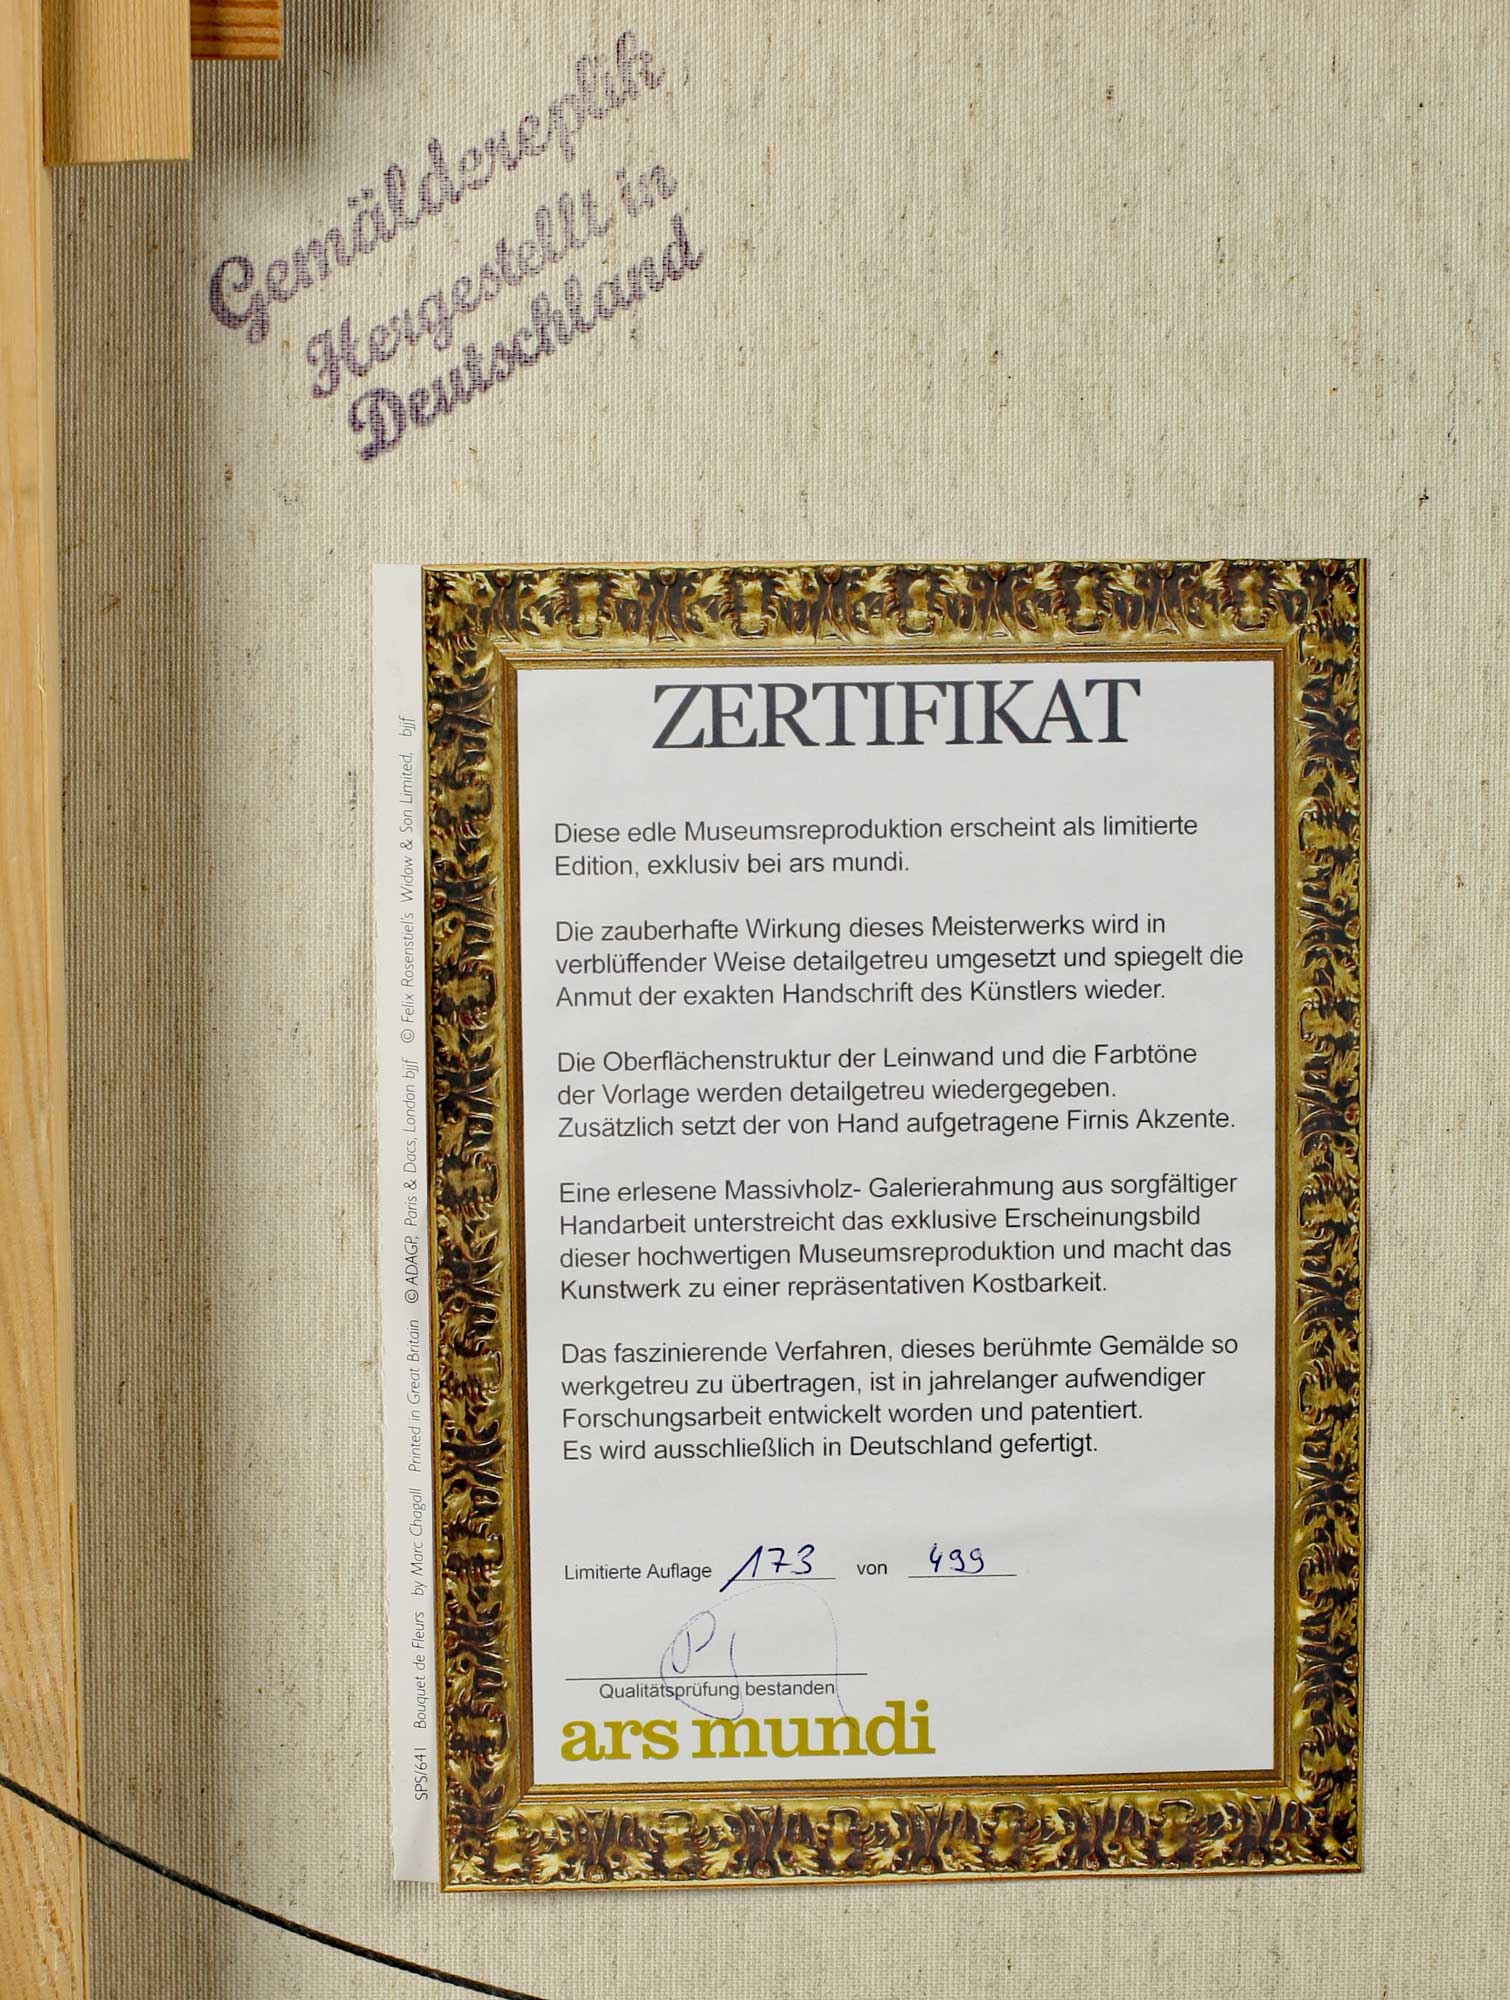 Gemäldereplik
Hergestellt in
Deutschland
ZERTIFIKAT
Diese edle Museumsreproduktion erscheint als limitierte
Edition, exklusiv bei ars mundi.
Die zauberhafte Wirkung dieses Meisterwerks wird in
verblüffender Weise detailgetreu umgesetzt und spiegelt die
Anmut der exakten Handschrift des Künstlers wieder.
Die Oberflächenstruktur der Leinwand und die Farbtöne
der Vorlage werden detailgetreu wiedergegeben.
Zusätzlich setzt der von Hand aufgetragene Firnis Akzente.
Eine erlesene Massivholz- Galerierahmung aus sorgfältiger
Handarbeit unterstreicht das exklusive Erscheinungsbild
dieser hochwertigen Museumsreproduktion und macht das
Kunstwerk zu einer repräsentativen Kostbarkeit.
Das faszinierende Verfahren, dieses berühmte Gemälde so
werkgetreu zu übertragen, ist in jahrelanger aufwendiger
Forschungsarbeit entwickelt worden und patentiert.
Es wird ausschließlich in Deutschland gefertigt.
Limitierte Auflage 173 von 499
Qualitätsprüfung bestanden
ars mundi
SPS/641 Bouquet de Fleurs by Marc Chagall Printed in Great Britain © ADAGP, Paris & Dacs, London bjjf © Felix Rosenstiel's Widow & Son Limited, bjjf